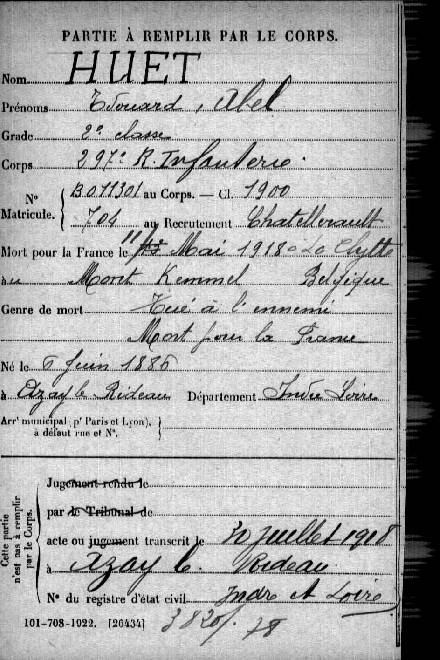 PARTIE À REMPLIR PAR LE CORPS.
Nom HUET
Prénoms Edouard, Abel
Grade 2e classe
Corps 297e R. Infanterie.
N° Matricule. B011301 au Corps. — Cl. 1900
704 au Recrutement Chatellerault
Mort pour la France le 11 Mai 1918 à La Clytte
au Mont Kemmel Belgique
Genre de mort Tué à l'ennemi
Mort pour la France
Né le 6 Juin 1886
à Azay le Rideau Département Indre Loire
Arrt municipal (pr Paris et Lyon),
à défaut rue et N°.
Cette partie n'est pas à remplir par le Corps.
Jugement rendu le
par le Tribunal de
acte ou jugement transcrit le 20 juillet 1918
à Azay le Rideau
N° du registre d'état civil Indre et Loire
101-708-1922. [26434]